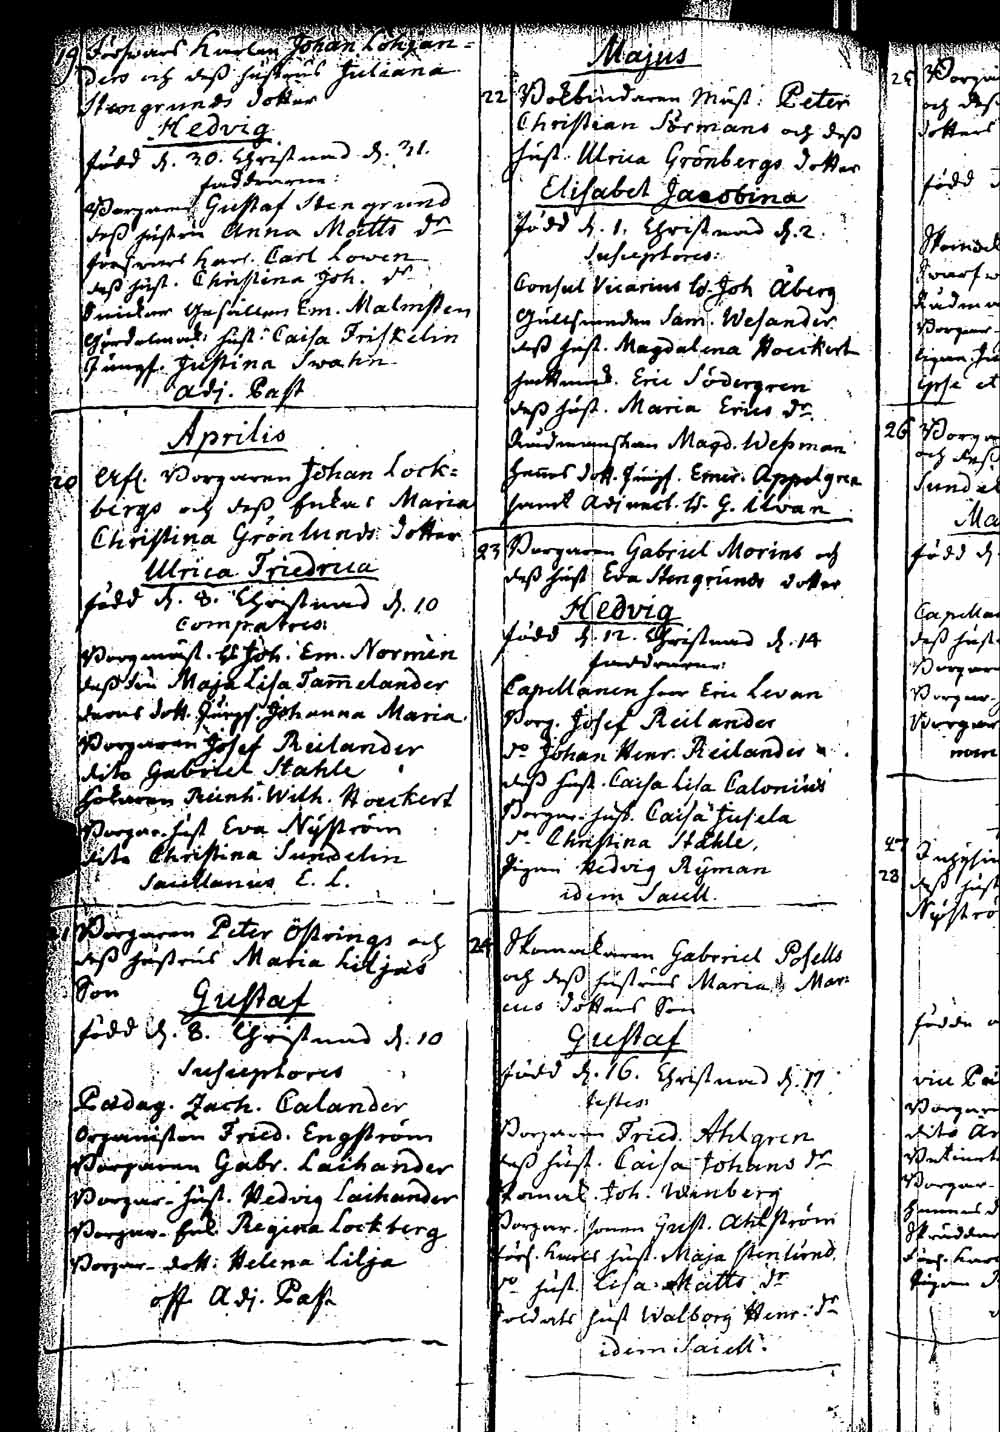 19 Försvars Karlen Johan Löhjan=
ders och deß hustrus Juliana
Stengrunds dotter
Hedvig
född d. 30. Christnad d. 31.
faddrarne:
Borgaren Gustaf Stengrund
deß hustru Anna Matts dr
försvars Karl. Carl Lowen
deß hust. Christina Joh. dr
Snickar Gesällen Em. Malmsten
hust: Caisa Friskelin
Jungf. Justina Swahn
Adj. Past
Aprilis
20 Borgaren Johan Lock=
bergs och deß Enkas Maria
Christina Grönlunds dotter
Ulrica Friedrica
född d. 8. Christnad d. 10
Compatres:
Joh. Em. Normèn
deß Maja Lisa Tam̅elander
deras dott. Jungf. Johanna Maria
Borgaren Josef Reilander
dito Gabriel Stahle
Reinh. Wilh. Hoeckert
Borgar-hust Eva Nÿström
dito Christina Sundelin
Sacellanus E. L.
21 Borgaren Peter Östrings och
deß hustrus Maria Liljas
Son
Gustaf
född d. 8. Christnad d. 10
Susceptores
Pædag. Zach. Calander
Organisten Fried. Engström
Borgaren Gabr. Laihander
Borgar-hust. Hedvig Laihander
Borgar-Enk. Regina Lockberg
Borgar-dott: Helena Lilja
off. Adj. Past
Majus
22 Bokbindaren Must: Peter
Christian Sörmans och deß
hust. Ulrica Grönbergs dotter
Elisabet Jacobina
född d. 1. Christnad d. 2.
Susceptores:
Consul Vicarius H. Joh Åberg
Gullsmeden Sam. Wesander
deß hust. Magdalena Hoeckert
Eric Södergren
deß hust. Maria Erics dr
Rådmanskan Magd. Weßman
hennes dott. Jungf. Emer. Appelgren
samt Adjunct. H. G. Ilvan
23 Borgaren Gabriel Morins och
deß hust Eva Stengrunds dotter
Hedvig
född d. 12. Christnad d. 14
faddrarne:
Capellanen herr Eric Levan
Borg. Josef Reilander
do Johan Henr. Reilander
deß hust. Caisa Lisa Calonius
Borgar-hust. Caisa Jusela
do Christina Stahle,
Pigan Hedvig Ryman
idem Sacell.
24 Skomakaren Gabriel Posells
och deß hustrus Maria Mar-
cus dotters Son
Gustaf
född d. 16. Christnad d. 17
testes:
Borgaren Fried. Ahlgren
deß hust. Caisa Johans dr
Skomak. Joh. Wenberg
Borgar-sonen Gust. Ahlström
förs. Karls hust. Maja Stenlund.
do hust. Lisa Matts dr
Soldats hust Walborg Henr. dr
idem Sacell.
25
och deß
dotters
född
26
och deß
född d
Capellan
deß hust
Borgar
Borgar-
Borgar
27
28
deß hust
Nÿströ
födde
Borgar
dito
Borgar-